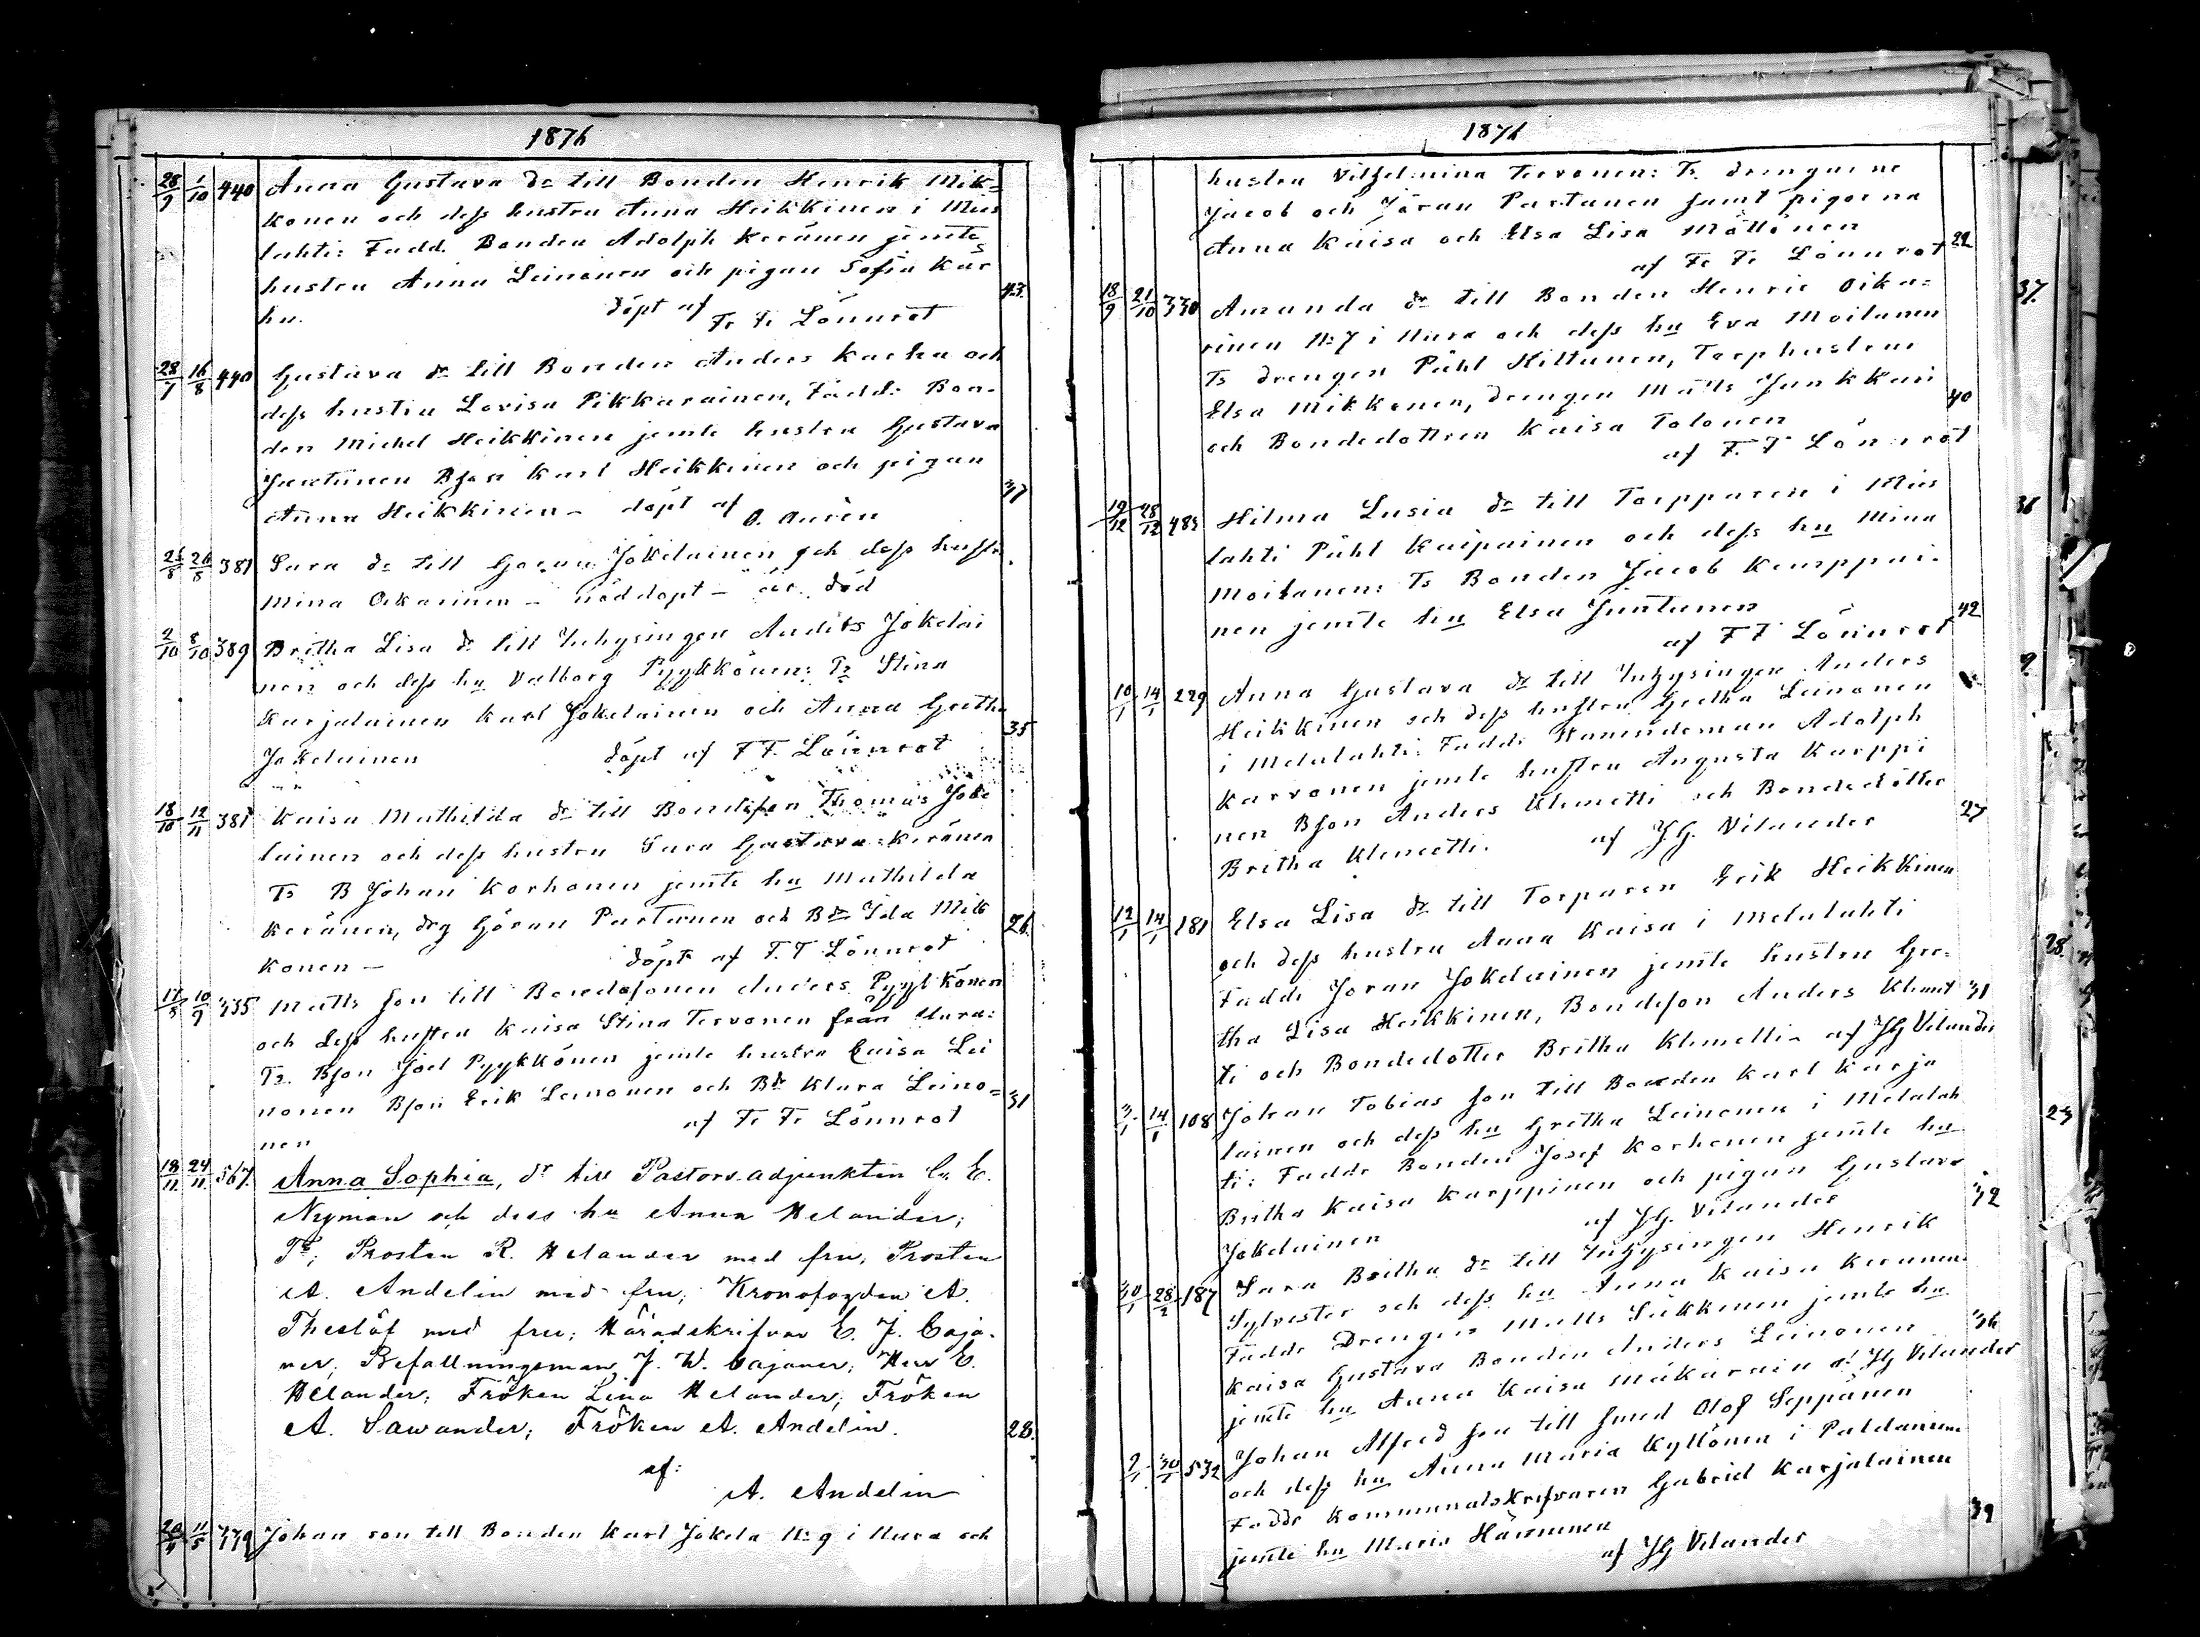 1876
28/9 1/10 440 Anna Gustava dr till Bonden Henrik Mik=
konen och dess hustru Anna Heikkinen i Mies
lahti: Fadd. Bonden Adolph Keränen jemte
hustru Anna Leinonen och pigan Sofia Kär
hu. döpt af Fr Fr Lönnrot 43.
28/7 16/8 440 Gustava dr till Bonden Anders Karhu och
dess hustru Lovisa Pikkarainen, Fadd: Bon-
den Michel Heikkinen jemte hustru Gustava
Juntunen Bson Karl Heikkinen och pigan
Anna Heikkinen – döpt af O. Auren 37
26/8 381 Sara dr till Göran Jokelainen och dess hustr
Mina Oikarinen – nöddöpt – är död
2/10 8/10 389 Britha Lisa dr till Inhysingen Anders Jokelai
nen och dess hu Valborg Pyykkönen: Tr Stina
Karjalainen Karl Jokelainen och Anna Gretha
Jokelainen döpt af F F. Lönnrot 35
18/10 12/11 381 Kaisa Mathilda dr till Bondeson Thomas Joke
lainen och dess hustru Sara Gustava Keränen
Ts B Johan Korhonen jemte hu Mathilda
Keränen, drg Göran Partanen och Bdr Ida Mik
konen – döpt af F. F Lönnrot 26.
17/8 10/9 335 Matts son till Bondesonen Anders Pyykkönen
och dess hustru Kaisa Stina Tervonen från Mura:
Ts. Bson Joel Pyykkönen jemte hustru Caisa Lei
nonen Bson Erik Leinonen och Bdr Klara Leino=
nen af Fr Fr Lönnrot 31
18/11 24/11 567. Anna Sophia, dr till Pastorsadjunkten C. E.
Nyman och dess hu Anna Helander;
Ts; Prosten R. Helander med fru; Prosten
A. Andelin med fru; Kronofogden A.
Theslöf med fru; Häradskrifvar E. J. Caja-
ner; Befallningsman J. W. Cajaner; Herr E.
Helander; Fröken Lina Helander; Fröken
A. Sawander; Fröken A. Andelin. 28.
af:
A. Andelin
11/5 339 Johan son till Bonden Karl Jokela No 9 i Mura och
1876
hustru Vilhelmina Tervonen: Ts. drengarne
Jacob och Jöran Partanen samt pigorna
Anna Kaisa och Elsa Lisa Möttönen
af Fr Fr Lönnrot 22
18/9 21/10 330 Amanda dr till Bonden Henric Oika- 37.
rinen No 7 i Mura och dess hu Eva Moilanen
Ts drengen Påhl Kiltunen, Torphustrun
Elsa Mikkonen, drengen Matts Junkkari
och Bondedottren Kaisa Tolonen 40
af F. F Lönnrot
19/12 28/12 483 Hilma Lusia dr till Torpparen i Mies 36
lahti Påhl Kaipainen och dess hu Mina
Moilanen: Ts Bonden Jacob Kemppai-
nen jemte hu Elsa Juntunen
af F F Lönnrot 42
10/1 14/1 229 Anna Gustava dr till Inhysingen Anders 9.
Heikkinen och dess hustru Gretha Leinonen
i Melalahti: Fadd: Nämndeman Adolph
Karvonen jemte hustru Augusta Karppi
nen Bson Anders Klemetti och Bondedotter
Britha Klemetti. af J G. Vilander 27
12/1 14/1 181 Elsa Lisa dr till Torparen Erik Heikkinen
och dess hustru Anna Kaisa i Melalahti
Fadd: Jöran Jokelainen jemte hustru Gre- 28.
tha Lisa Heikkinen, Bondeson Anders Klemet 31
ti och Bondedotter Britha Klemetti – af J G Vilander
3/1 14/1 108 Johan Tobias son till Bonden Karl Karja
lainen och dess hu Gretha Leinonen i Melalah 23
ti: Fadd: Bonden Josef Korhonen jemte hu
Britha Kaisa Karppinen och pigan Gustava
Jokelainen af J G. Vilander 32
30/1 28/2 187 Sara Britha dr till Inhysingen Henrik
Sylvester och dess hu Anna Kaisa Keränen
Fadd: Drengen Matts Sirkkinen jemte hu
Kaisa Gustava Bonden Anders Leinonen 36
jemte hu Anna Kaisa Mäkäräin af J G Vilander
30/1 532 Johan Alfred son till smed Olof Seppänen
och dess hu Anna Maria Kyllönen i Paldaniemi
Fadd: Kommunalskrifvaren Gabriel Karjalainen
jemte hu Maria Hänninen 39
af J G Vilander